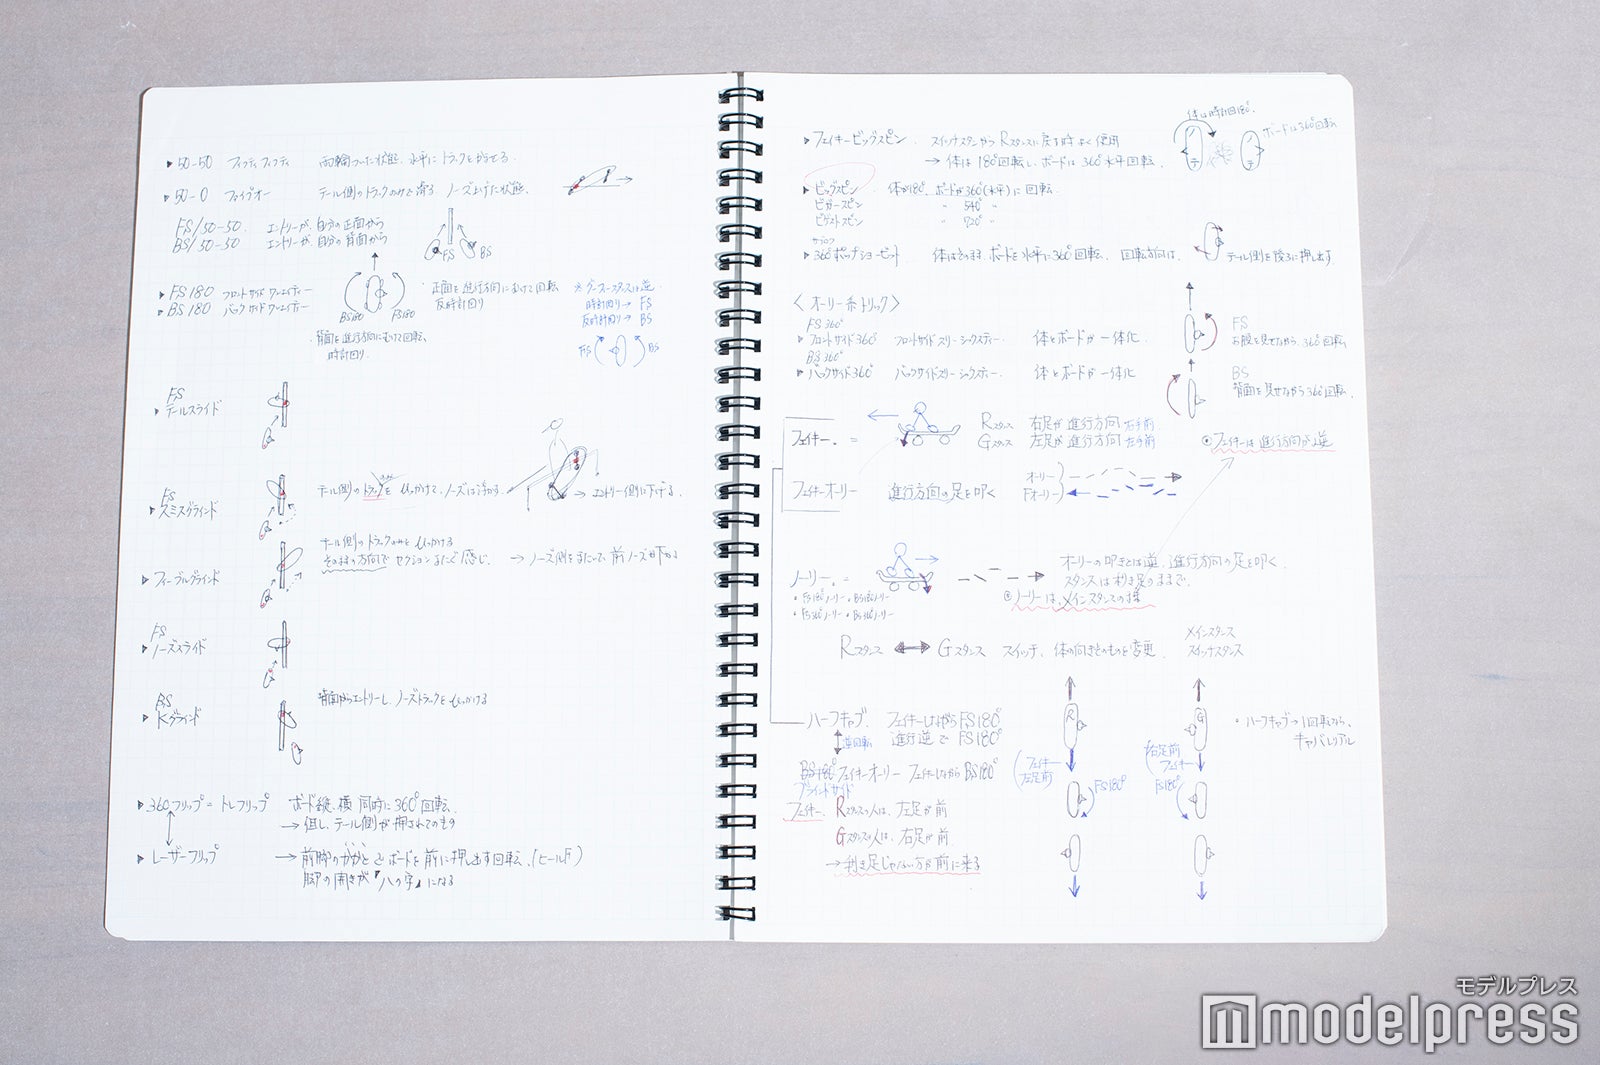 ▸50-50 フィフティフィフティ 両輪つった状態、水平にトラックをかける。
▸50-0 ファイブオー テール側のトラックのみで滑る ノーズ上げた状態、
FS/50-50. エントリーが、自分の正面から
BS/50-50 エントリーが、自分の背面から
FS BS
▸FS180 フロントサイド ワンエイティー
▸BS180 バックサイド ワンエイティー
BS180 FS180
正面を進行方向にむけて回転
反時計回り
背面を進行方向にむけて回転、
時計回り
※グーフースタンスは逆
時計回り→FS
反時計回り→BS
FS BS
FS
▸テールスライド
FS
▸スミスグラインド
テール側のトラックをひっかけて、ノーズは浮かる
→エントリー側に下げる、
▸フィーブルグラインド
テール側のトラックのみをひっかける
そのままの方向でセクションまたぐ感じ
→ノーズ側をまたいで、前ノーズが下がる
FS
▸ノーズスライド
BS
▸Kグラインド
背面からエントリーし、ノーズトラックをひっかける
▸360フリップ=トレフリップ ボード縦、横 同時に360°回転、
→但し、テール側が押されてのもの
▸レーザーフリップ →前脚のかかとでボードを前に押し出す回転、(ヒールF)
脚の開きが「ハの字」になる
▸フェイキービッグスピン、 スイッチスタンスからRスタンスに戻す時よく使用
→体は180°回転し、ボードは360°水平回転、
体は時計回180°、
ボードは360°回転
▸ビッグスピン 体が180°、ボードが360°(水平)に回転
ビガースピン 〃 540° 〃
ビゲストスピン 〃 720° 〃
▸360°ポップショービット 体はそのまま、ボードを水平に360°回転、回転方向は、
テール側を後ろに押し出す
〈オーリー系トリック〉
FS360°
▸フロントサイド360° フロントサイドスリーシックスティー、 体とボードが一体化
BS360°
▸バックサイド360° バックサイドスリーシックスティー、 体とボードが一体化
FS
お腹を見せながら、360°回転
BS
背面を見せながら360°回転、
フェイキー、=
Rスタンス 右足が進行方向 右手前
Gスタンス 左足が進行方向 左手前
◉フェイキーは進行方向が逆
フェイキーオーリー 進行方向の足を叩く
オーリー
Fオーリー
ノーリー、=
・FS180°ノーリー・BS180°ノーリー
・FS360°ノーリー・BS360°ノーリー
オーリーの叩きとは逆、進行方向の足を叩く、
スタンスは利き足のままで、
◉ノーリーは、メインスタンスの様
Rスタンス ⟷ Gスタンス スイッチ、体の向きそのものを変更、
メインスタンス
スイッチスタンス
ハーフキャブ、 フェイキーしながらFS180°
進行逆でFS180°
逆回転
BS180°フェイキーオーリー フェイキーしながらBS180°
ブラインドサイド
フェイキー、 Rスタンスの人は、左足が前
Gスタンスの人は、右足が前
→利き足じゃない方が前に来る
R
フェイキー
左足前
FS180°
G
右足前
フェイキー
FS180°
・ハーフキャブ→1回転なら、
キャバレリアル
モデルプレス
modelpress